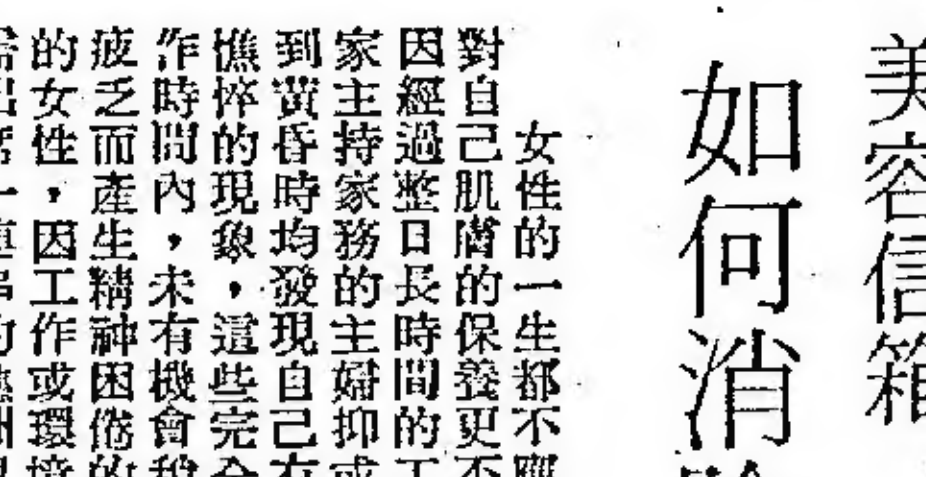 美容信箱
如何消
女性的一生都不應
對自己肌膚的保養更不
因經過整日長時間的工
家主持家務的主婦抑或
到黃昏時均發現自己有
憔悴的現象，這些完全
作時間內，未有機會稍
疲乏而產生精神困倦的
的女性，因工作或環境